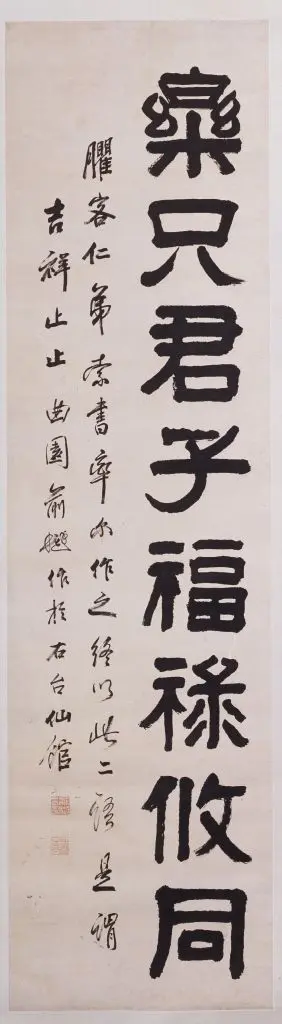 樂只君子福祿攸同
臞客仁弟索書率尔作之終以此二語是謂
吉祥止止曲園俞樾作於右台仙館